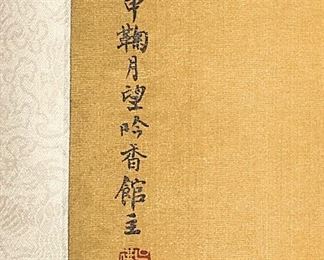 申鞠月望吟香館主